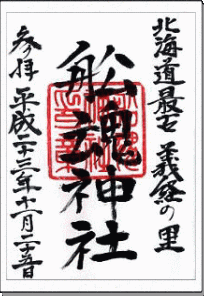 北海道最古 義経の里
船魂神社
参拝 平成二十三年十一月二十五日